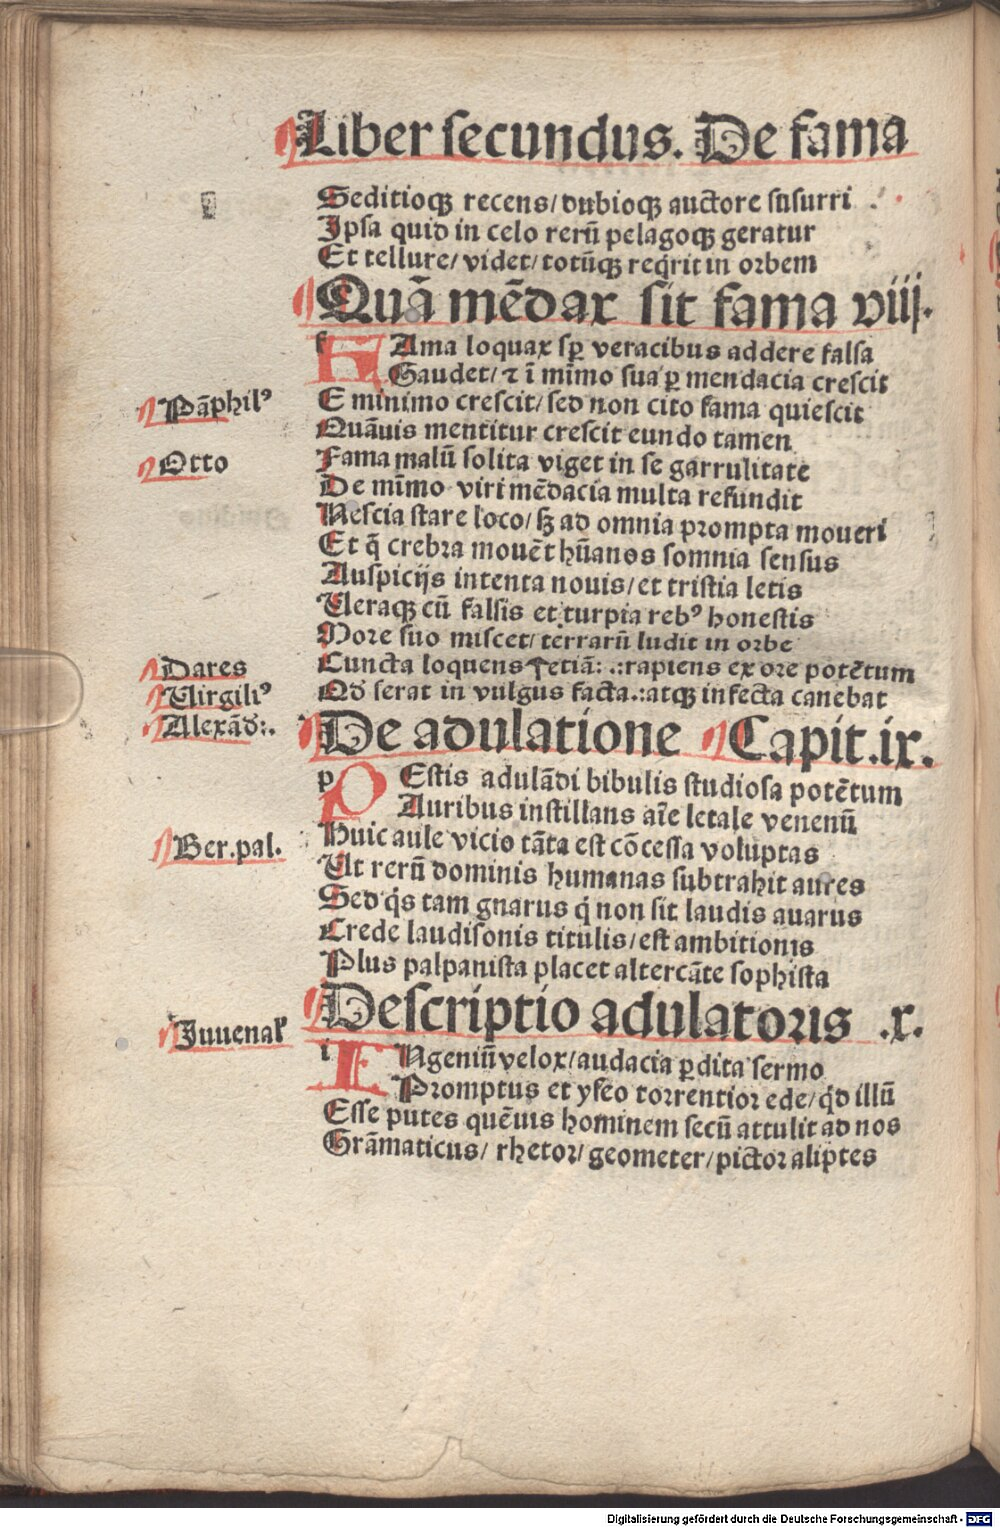 Liber secundus. De fama
Seditioqꝫ recens/dubioqꝫ auctore susurri
Ipsa quid in celo rerū pelagoqꝫ geratur
Et tellure/videt/totūqꝫ reqͥrit in orbem
Quā mēdax sit fama viij.
f Ama loquax sꝑ veracibus addere falsa
Gaudet/⁊ ī mīmo sua ꝑ mendacia crescit
Pāphilꝰ
E minimo crescit/sed non cito fama quiescit
Quāuis mentitur crescit eundo tamen
Otto
Fama malū solita viget in se garrulitate
De mīmo viri mēdacia multa refundit
Nescia stare loco/sꝫ ad omnia prompta moueri
Et q̄ crebra mouēt hūanos somnia sensus
Auspicijs intenta nouis/et tristia letis
Veraqꝫ cū falsis et turpia rebꝰ honestis
More suo miscet/terrarū ludit in orbe
Dares
Cuncta loquens⁊etiā: .:rapiens ex ore potētum
Virgiliꝰ
Qd serat in vulgus facta.:atqꝫ infecta canebat
Alexād:.
De adulatione Capit.ix.
p Estis adulādi bibulis studiosa potētum
Auribus instillans aīe letale venenū
Huic aule vicio tāta est cōcessa voluptas
Ber.pal.
Ut rerū dominis humanas subtrahit aures
Sed qͥs tam gnarus qͥ non sit laudis auarus
Crede laudisonis titulis/est ambitionis
Plus palpanista placet altercāte sophista
Descriptio adulatoris .x.
Juuenal
i Ngeniū velox/audacia ꝑdita sermo
Promptus et yseo torrentior ede/qͥd illū
Esse putes quēuis hominem secū attulit ad nos
Grāmaticus/ rhetor/geometer/pictor aliptes
Digitalisierung gefördert durch die Deutsche Forschungsgemeinschaft - DFG